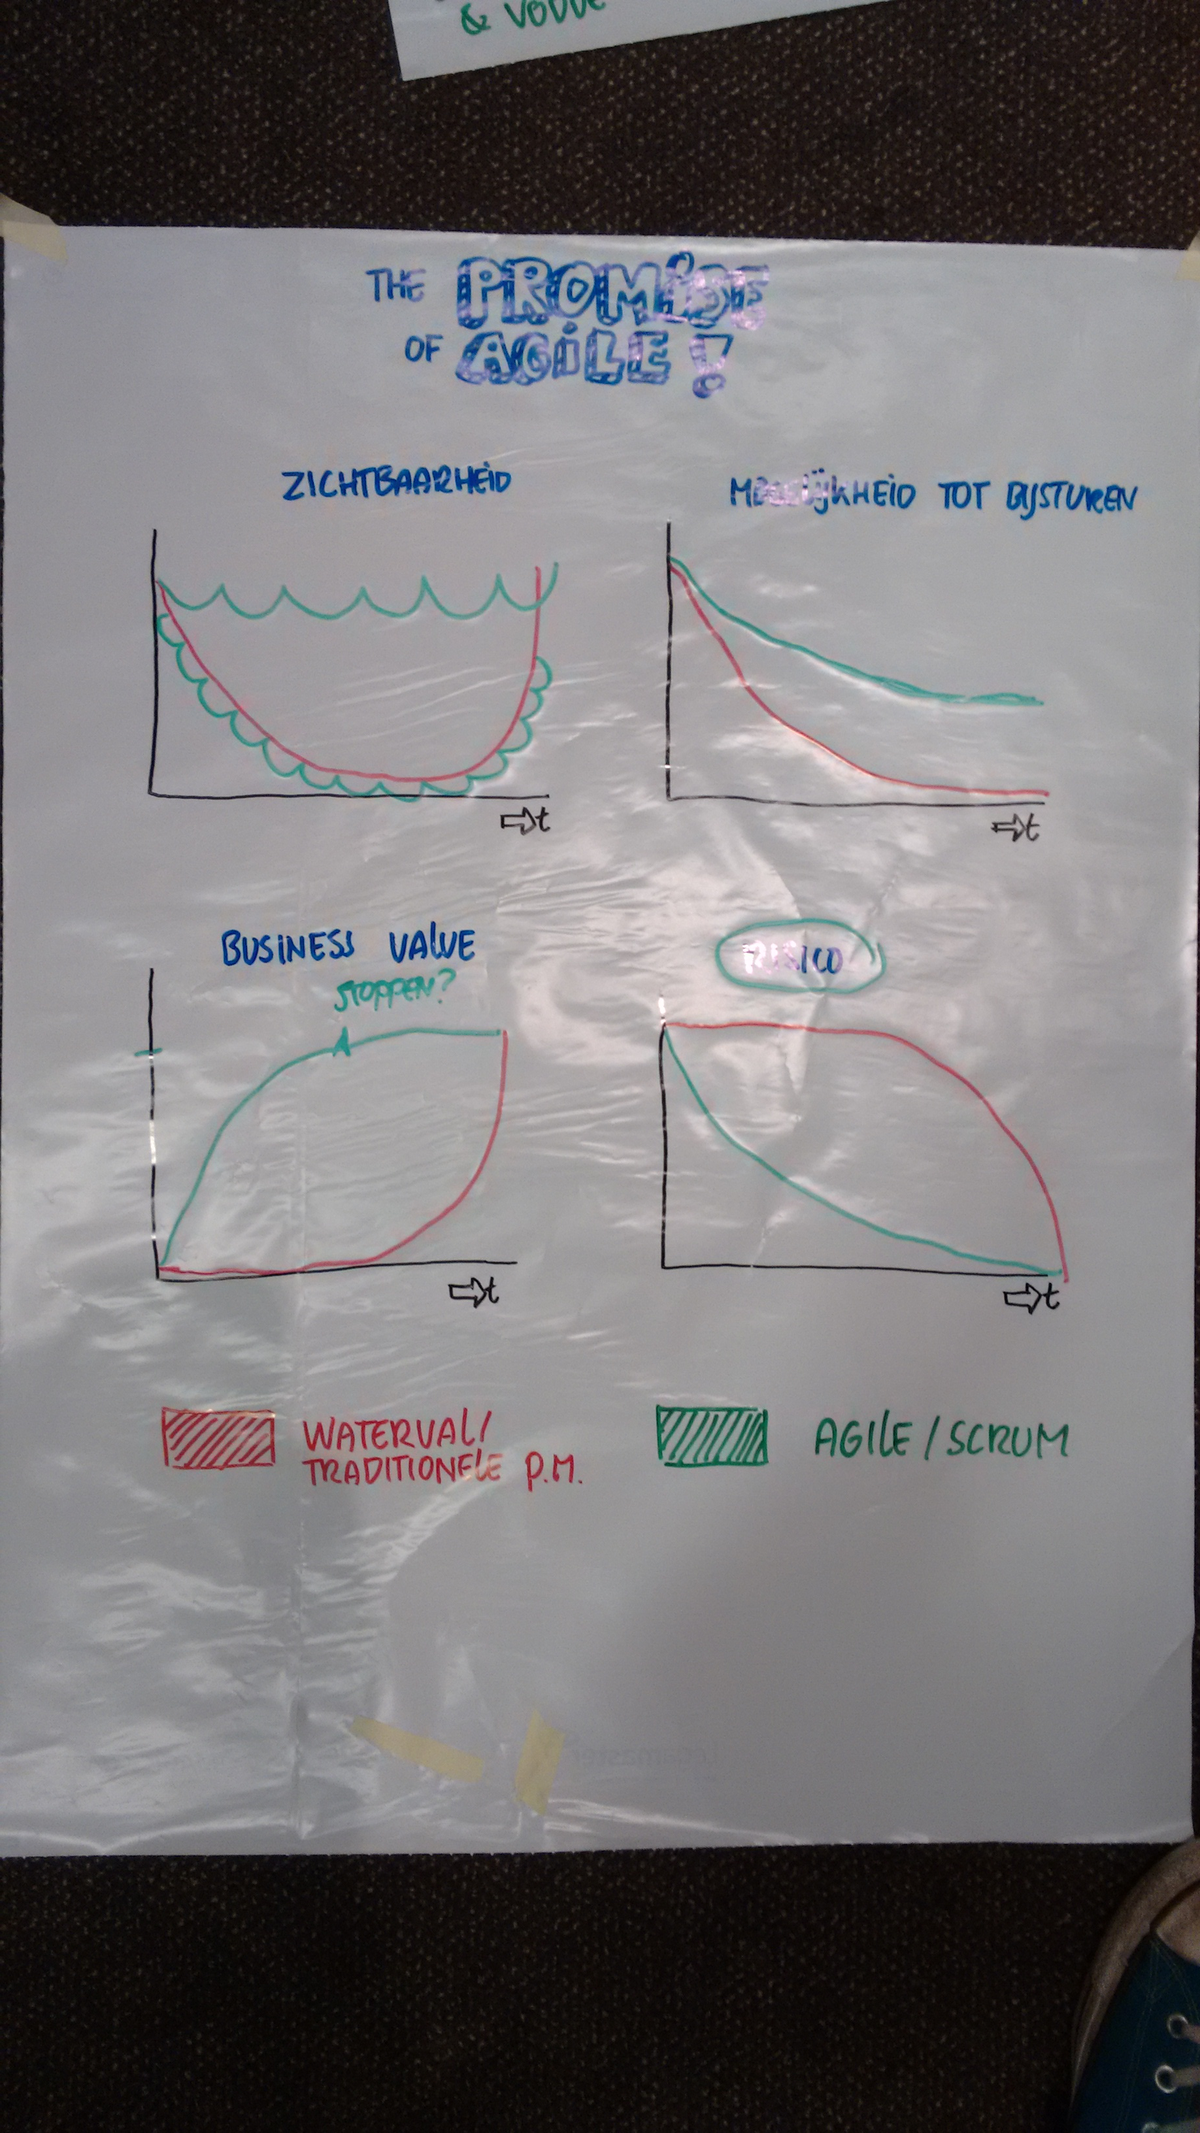 & VODDE
THE PROMiSE
OF AGiLE !
ZICHTBAARHEID
MOGELIJKHEID TOT BIJSTUREN
⇨t
⇨t
BUSINESS VALUE
STOPPEN?
RISICO
⇨t
⇨t
WATERVAL/
TRADITIONELE P.M.
AGILE / SCRUM
Legamaster